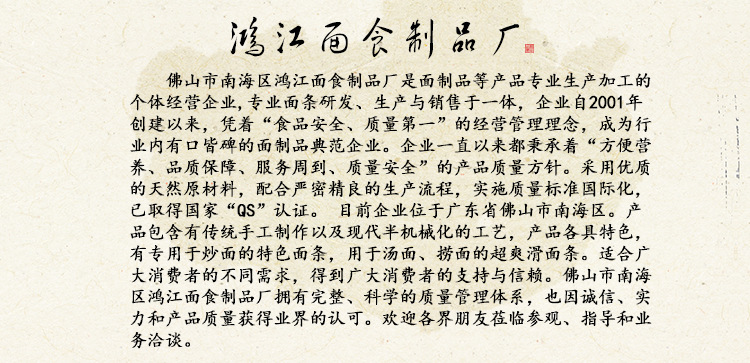 鸿江面食制品厂
佛山市南海区鸿江面食制品厂是面制品等产品专业生产加工的
个体经营企业,专业面条研发、生产与销售于一体，企业自2001年
创建以来，凭着“食品安全、质量第一”的经营管理理念，成为行
业内有口皆碑的面制品典范企业。企业一直以来都秉承着“方便营
养、品质保障、服务周到、质量安全”的产品质量方针。采用优质
的天然原材料，配合严密精良的生产流程，实施质量标准国际化，
已取得国家“QS”认证。 目前企业位于广东省佛山市南海区。产
品包含有传统手工制作以及现代半机械化的工艺，产品各具特色，
有专用于炒面的特色面条，用于汤面、捞面的超爽滑面条。适合广
大消费者的不同需求，得到广大消费者的支持与信赖。佛山市南海
区鸿江面食制品厂拥有完整、科学的质量管理体系，也因诚信、实
力和产品质量获得业界的认可。欢迎各界朋友莅临参观、指导和业
务洽谈。